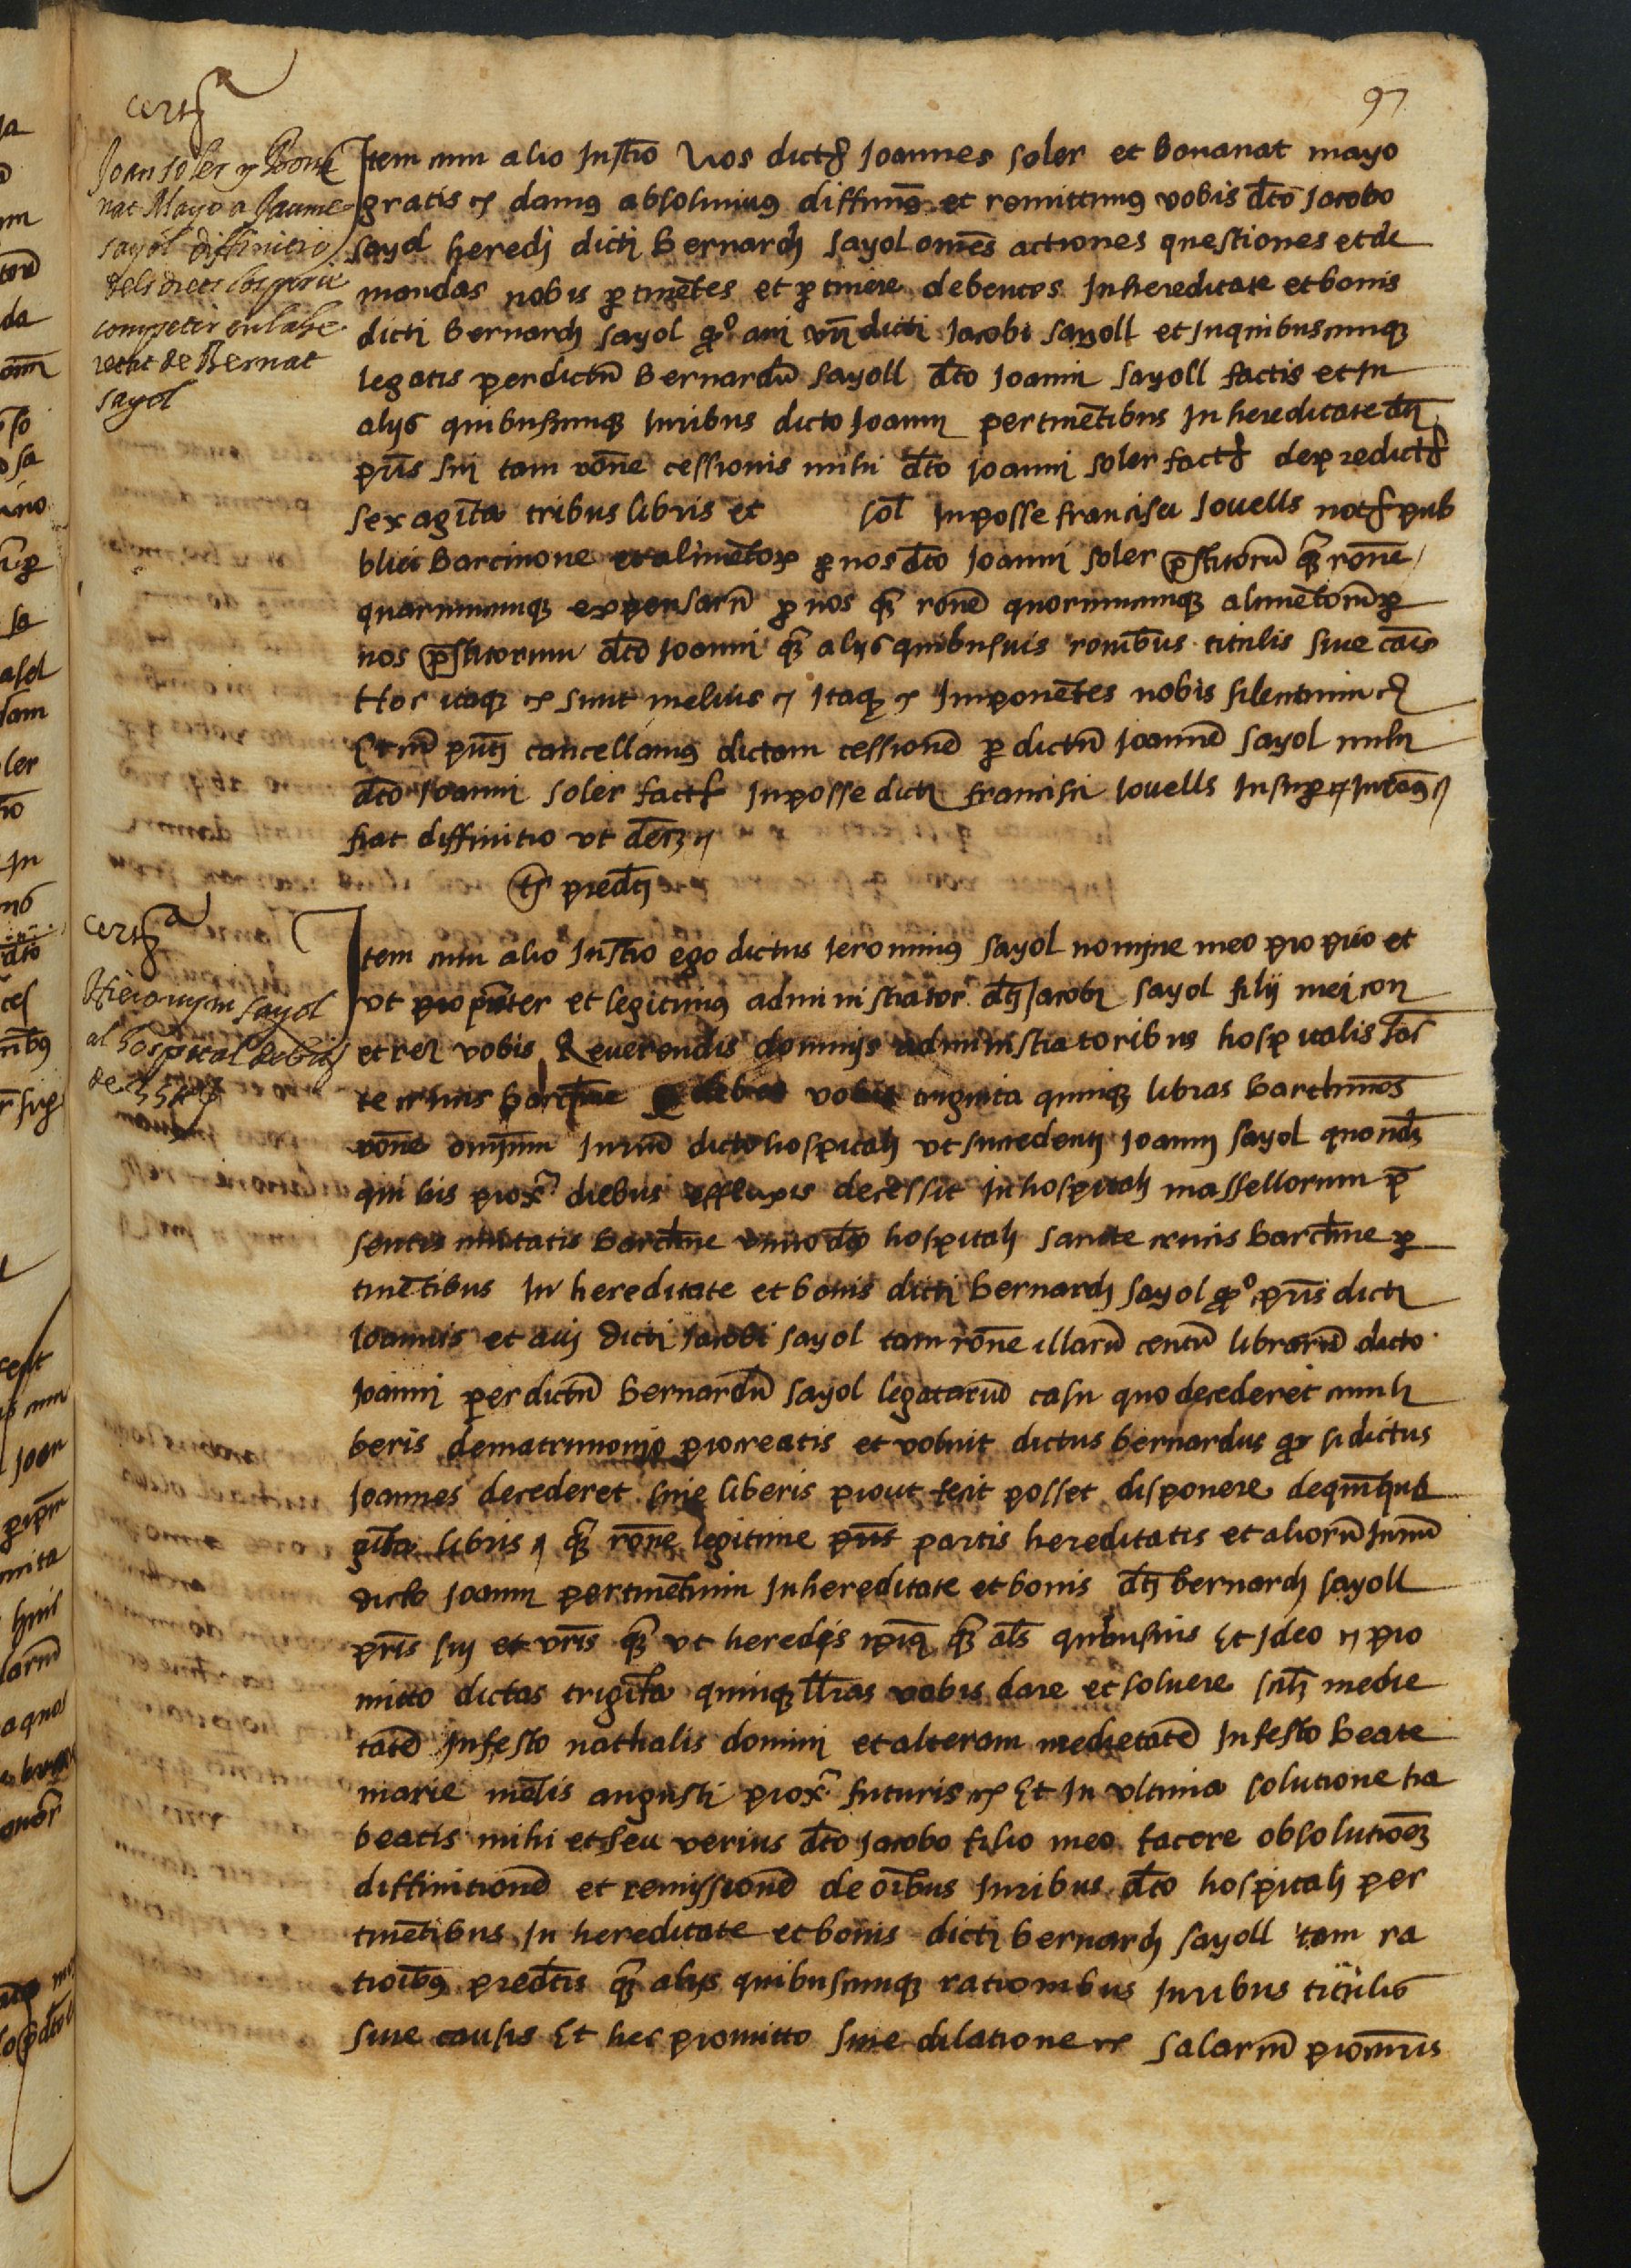 97
certa
Joan soler y Bona
nat Mayo a Jaume
sayol diffinitio
dels drets los pertã
competir en la he
retat de Bernat
sayol
Item cum alio Instro Nos dicti Joannes soler et Bonanat mayo
gratis etc damus absolvimus diffinimus et remittimus vobis dto Jacobo
sayol heredi dicti Bernardi sayol omes actiones questiones et de
mandas nobis ptinetes et ptinere debentes In hereditate et bonis
dicti Bernardi sayol qo avi vri dicti Jacobi sayoll et In quibuscunque
legatis per dictu Bernardu sayoll dto Joanni sayoll factis et In
alijs quibuscunque Juribus dicto Joanni pertinetibus In hereditate dti
pris sui tam rone cessionis mihi dto Joanni soler facte de predictis
sexaginta tribus libris et sol In posse francisci Jovells not pub
blici Barcinone et alimetor p nos dto Joanni soler prestitoru q rone
quarumcunque expensaru p nos q rone quorumcunque alimetoru p
nos prestitorum dto Joanni q alijs quibusvis ronibus titulis sive cais
Hec itaque etc sicut melius etc Itaque etc Imponetes nobis silentium etc
Et cu pnti cancellamus dictam cessione p dictu Joanne sayol mihi
dto Joanni soler facta In posse dicti francisci Jovells Insup etc Juramus etc
fiat diffinitio ut decz etc
ts predti
certa
Hieronym sayol
al hospital debitori
de 35 ll
Item cum alio Instro ego dictus Jeronimus sayol nomine meo proprio et
ut pr pater et legitimus administrator dti Jacobi sayol filij mei con
et rec vobis Reverendis dominis administratoribus hospitalis sac
te crucis barchne debeo vobis triginta quinque libras barchinones
rone omnium Juriu dicto hospitali ut succedenti Joanni sayol quonda
qui his prox diebus effluxis decessit In hospitali massellorum pre
sentis civitatis barchne dto hospitali sancte crucis barchne p
tinetibus In hereditate et bonis dicti bernardi sayol qo pris dicti
Joannis et avi dicti Jacobi sayol tam rone illaru centu libraru dicto
Joanni per dictu bernardu sayol legataru casu quo decederet cum li
beris de matrimonio procreatis et voluit dictus bernardus qo si dictus
Joannes decederet sine liberis prout fecit posset disponere de quinqua
ginta libris etc q rone legitime pris partis hereditatis et alioru Juriu
dicto Joanni pertinetium In hereditate et bonis dti bernardi sayoll
pris sui et vris q ut heredis ipius q als quibusvis Et Ideo etc pro
mitto dictas triginta quinque lliras vobis dare et solvere scilt medie
tate In festo nathalis domini et alteram medietate In festo beate
marie mesis augusti prox futuris etc Et In ultima solutione ha
beatis mihi et seu verius dto Jacobo filio meo facere absolutioe
diffinitione et remissione de oibus Juribus dto hospitali per
tinetibus In hereditate et bonis dicti bernardi sayoll tam ra
tioibus predtis q alijs quibuscunque rationibus Juribus titulis
sive causis Et hec promitto sine dilatione etc salariu procuris